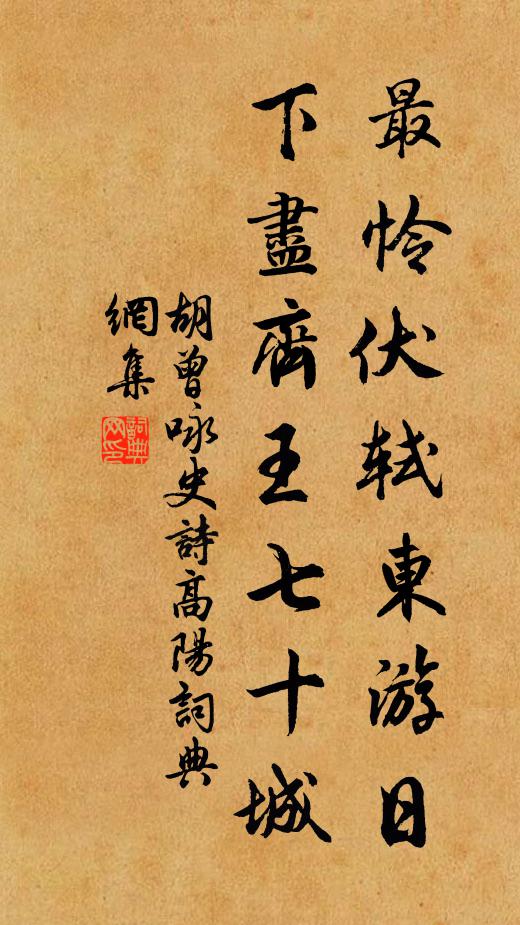 最怜伏轼東游日
下盡齊王七十城
胡曾咏史詩高陽詞典
網集
詞典
网印